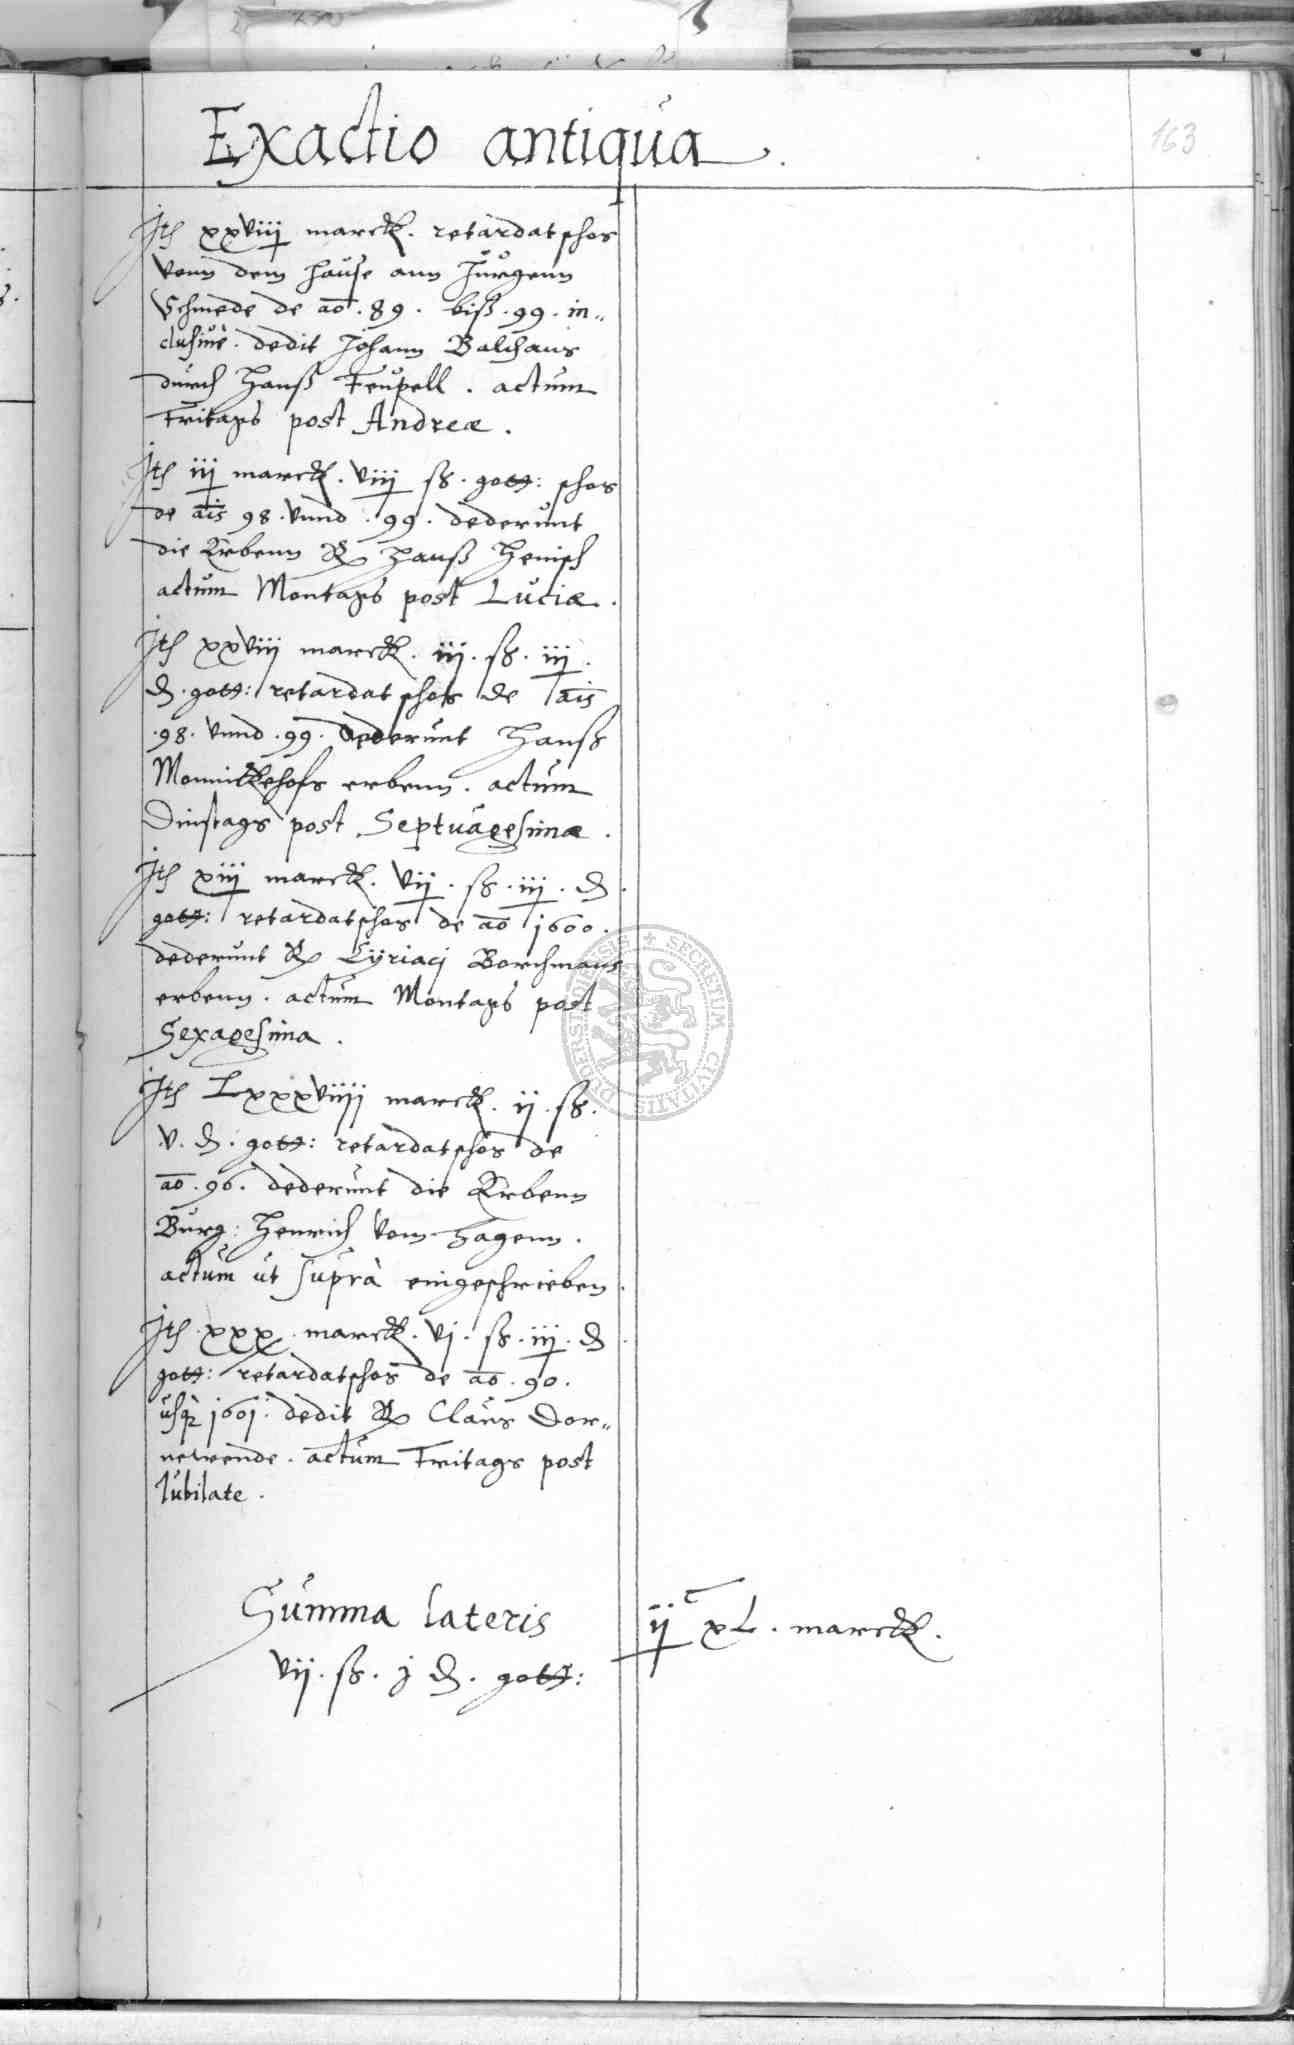 163
Exactio antiqua.
Jtē xxviij marck. retardat schos
vonn dem hause ann Jurgenn
Schmede de aō. 89. biß. 99. in„
clusiuè. dedit Johann Balchaus
durch Hanß Teupell. actum
Fritags post Andreæ.
Jtē iij marck. viij sß. gott: schos
de āis 98. vnnd. 99. dederunt
die Erbenn Hanß Henisch
actum Montags post Luciæ.
Jtē xxviij marck. iij. sß. iij.
₰. gott: retardat schos de āis
.98. vnnd. 99. dederunt Hanß
Monnickehofs erbenn. actum
Dinstags post Septuagesimæ.
Jtē xiij marck. vij. sß. iij. ₰.
gott: retardatschos de aō 1600.
dederunt Cÿriacj Borchmans
erbenn. actum Montags post
Sexagesima.
Jtē Lxxxviiij marck. ij. sß.
v. ₰. gott: retardatschos de
aō. 96. dederunt die Erbenn
Burg: Henrich vom Hagenn.
actum ut suprà eingeschrieben.
Jtē. xxx. marck. vj. sß. iij. ₰.
gott: retardatschos de aō. 90.
usq; 1601. dedit Claus Dor„
newende. actum Fritags post
Iubilate.
Summa lateris ij^c xL. marck.
vij. sß. j ₰. gott:
SECRETUM CIVITATIS DUDERSTADIENSIS